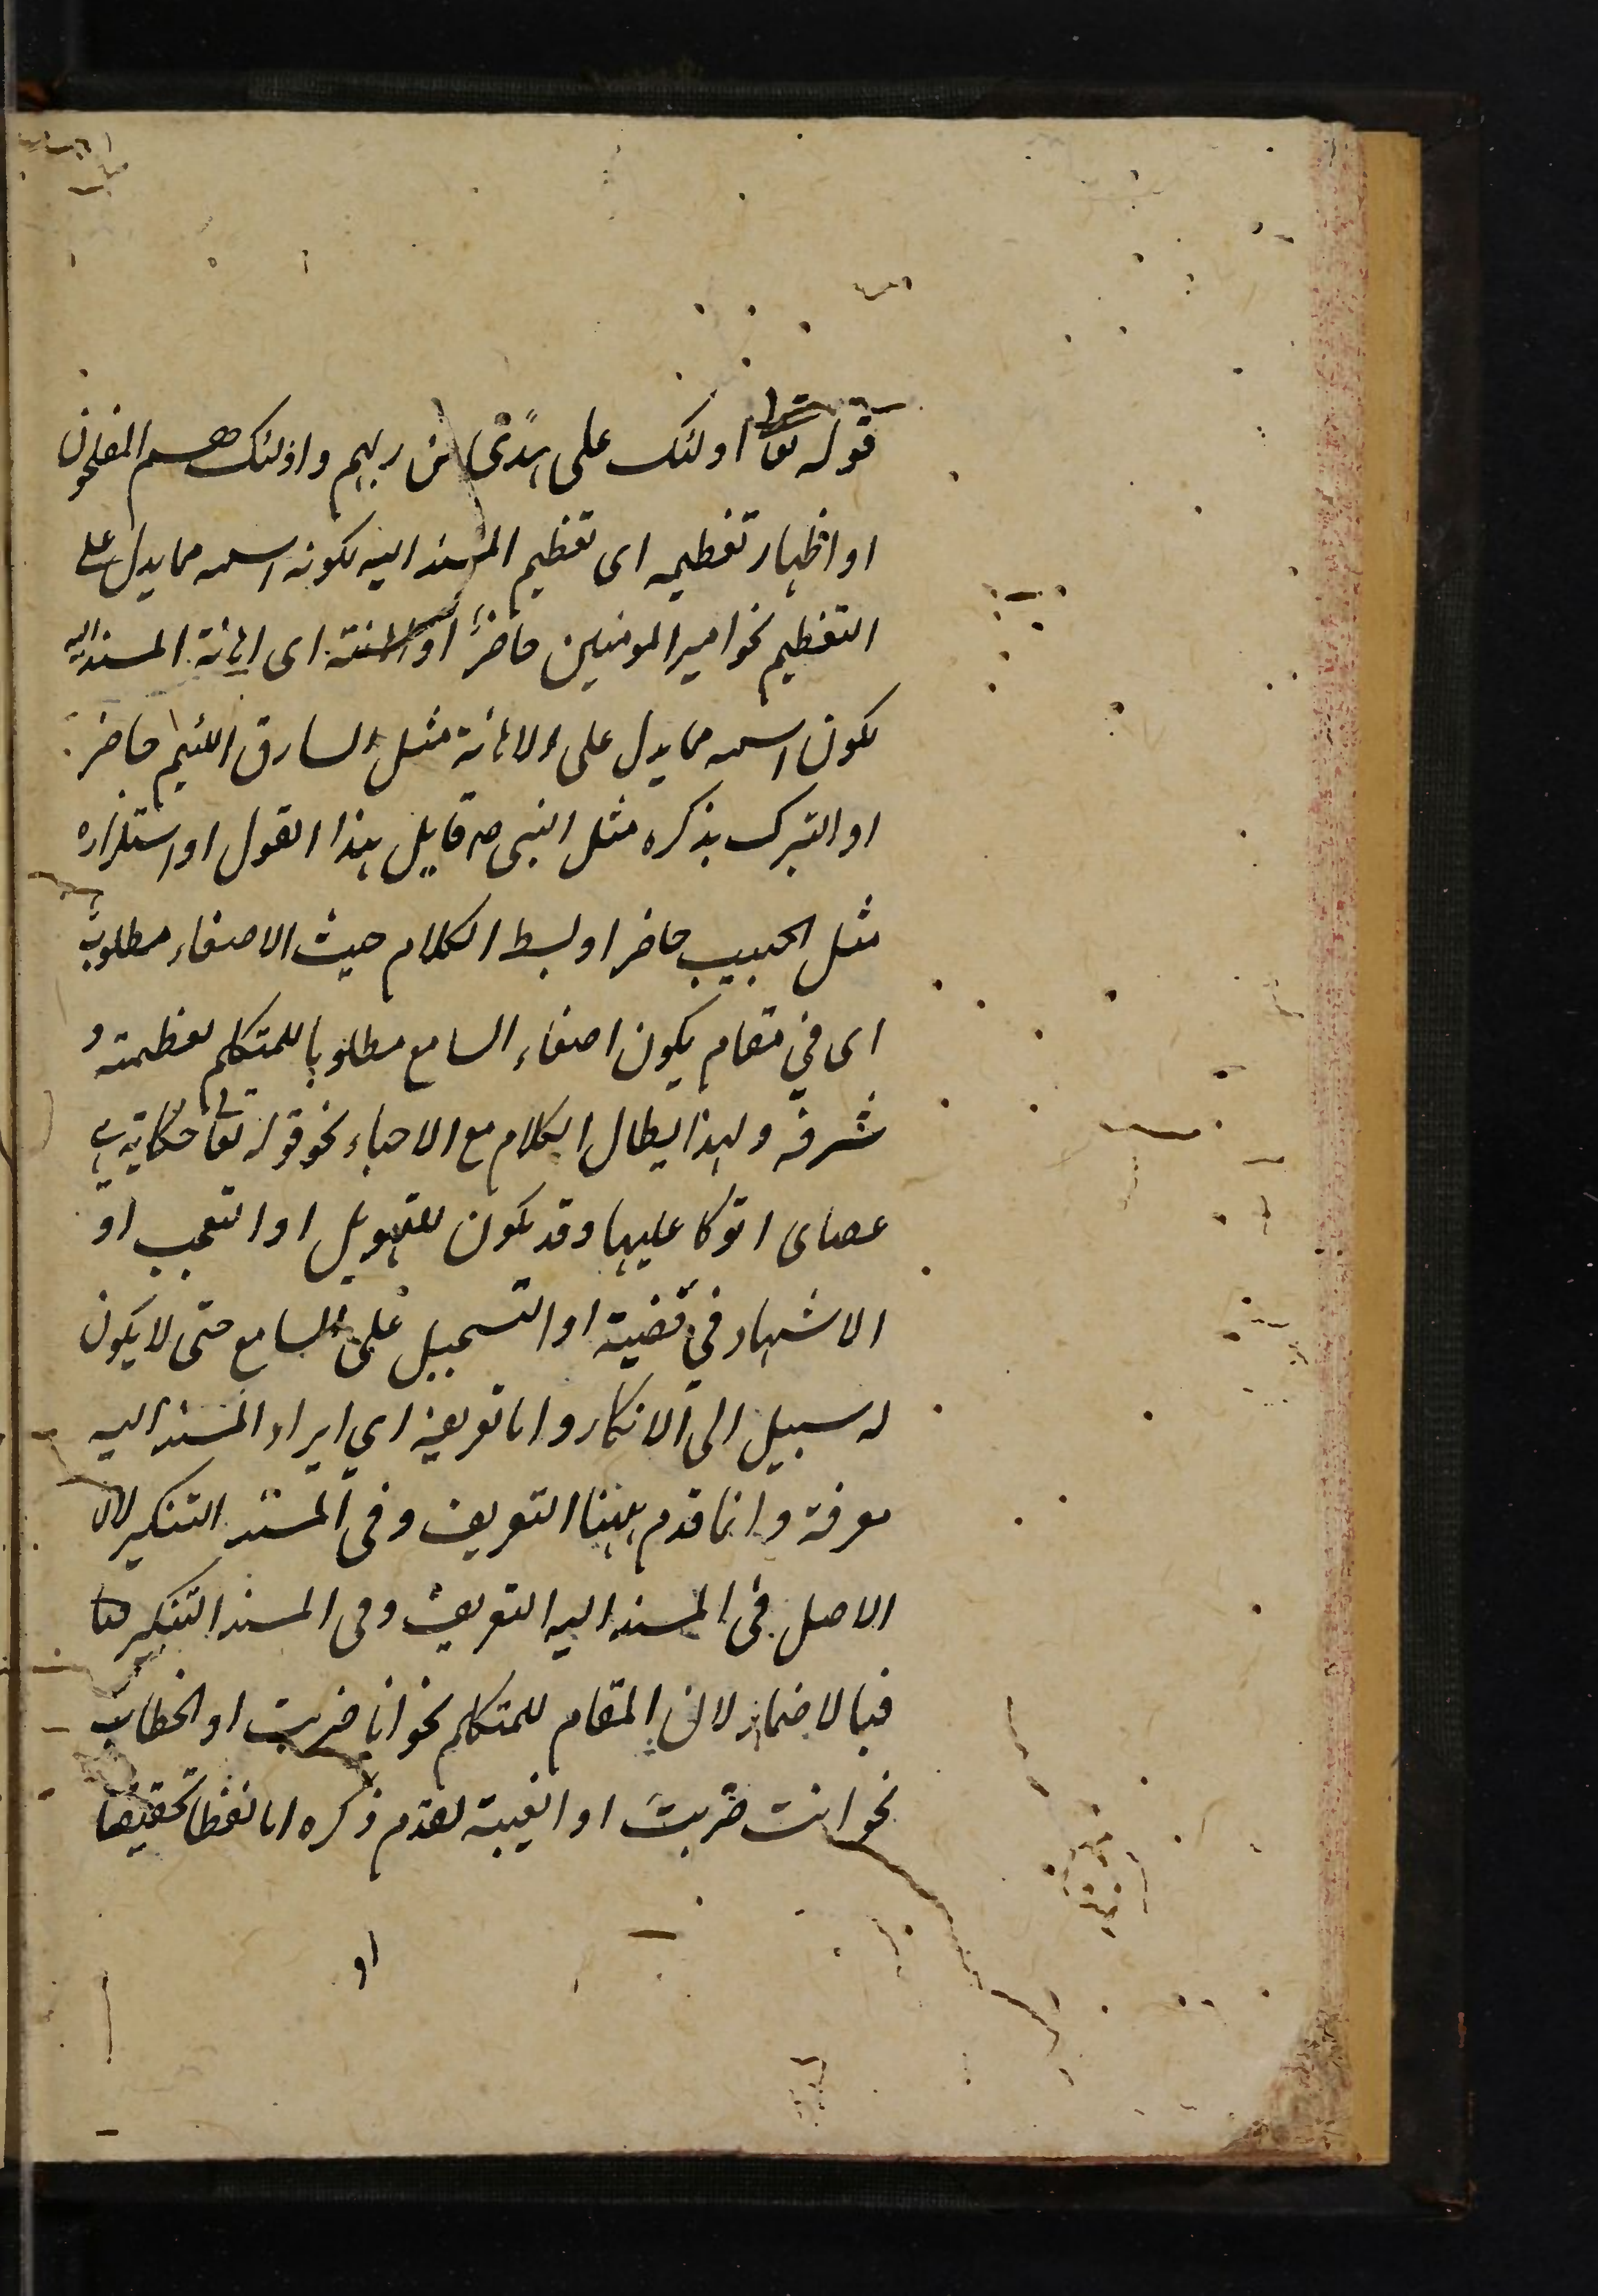 قوله تعا اولئك على هدًى من ربهم واولئك هم المفلحون
او اظهار تعظيمه اى تعظيم المسند اليه لكونه اسمه مما يدل على
التعظيم نحو امير المومنين حاضرٌ او اهانته اى اهانة المسند اليه
لكون اسمه مما يدل على الاهانة مثل السارق اللئيم حاضر
او التبرك بذكره مثل النبى ص قايل هذا القول او استلذاذه
مثل الحبيب حاضر او بسط الكلام حيث الاصغاء مطلوب
اى فى مقام يكون اصغاء السامع مطلوبا للمتكلم لعظمته و
شرفه ولهذا يطال الكلام مع الاحباء نحو قوله تعالى حكاية هى
عصاى اتوكا عليها وقد يكون للتهويل او التعجب او
الاشهاد فى قضية او التسجيل على السامع حتى لا يكون
له سبيل الى الانكار واما تعريفه اي ايراد المسند اليه
معرفة وانما قدم ههنا التعريف وفى المسند التنكير لان
الاصل فى المسند اليه التعريف وفى المسند التنكير
فبالاضمار لان المقام للمتكلم نحو انا ضربت او الخطاب
نحو انت ضربت او الغيبة لتقدم ذكره اما لفظا تحقيقا
او